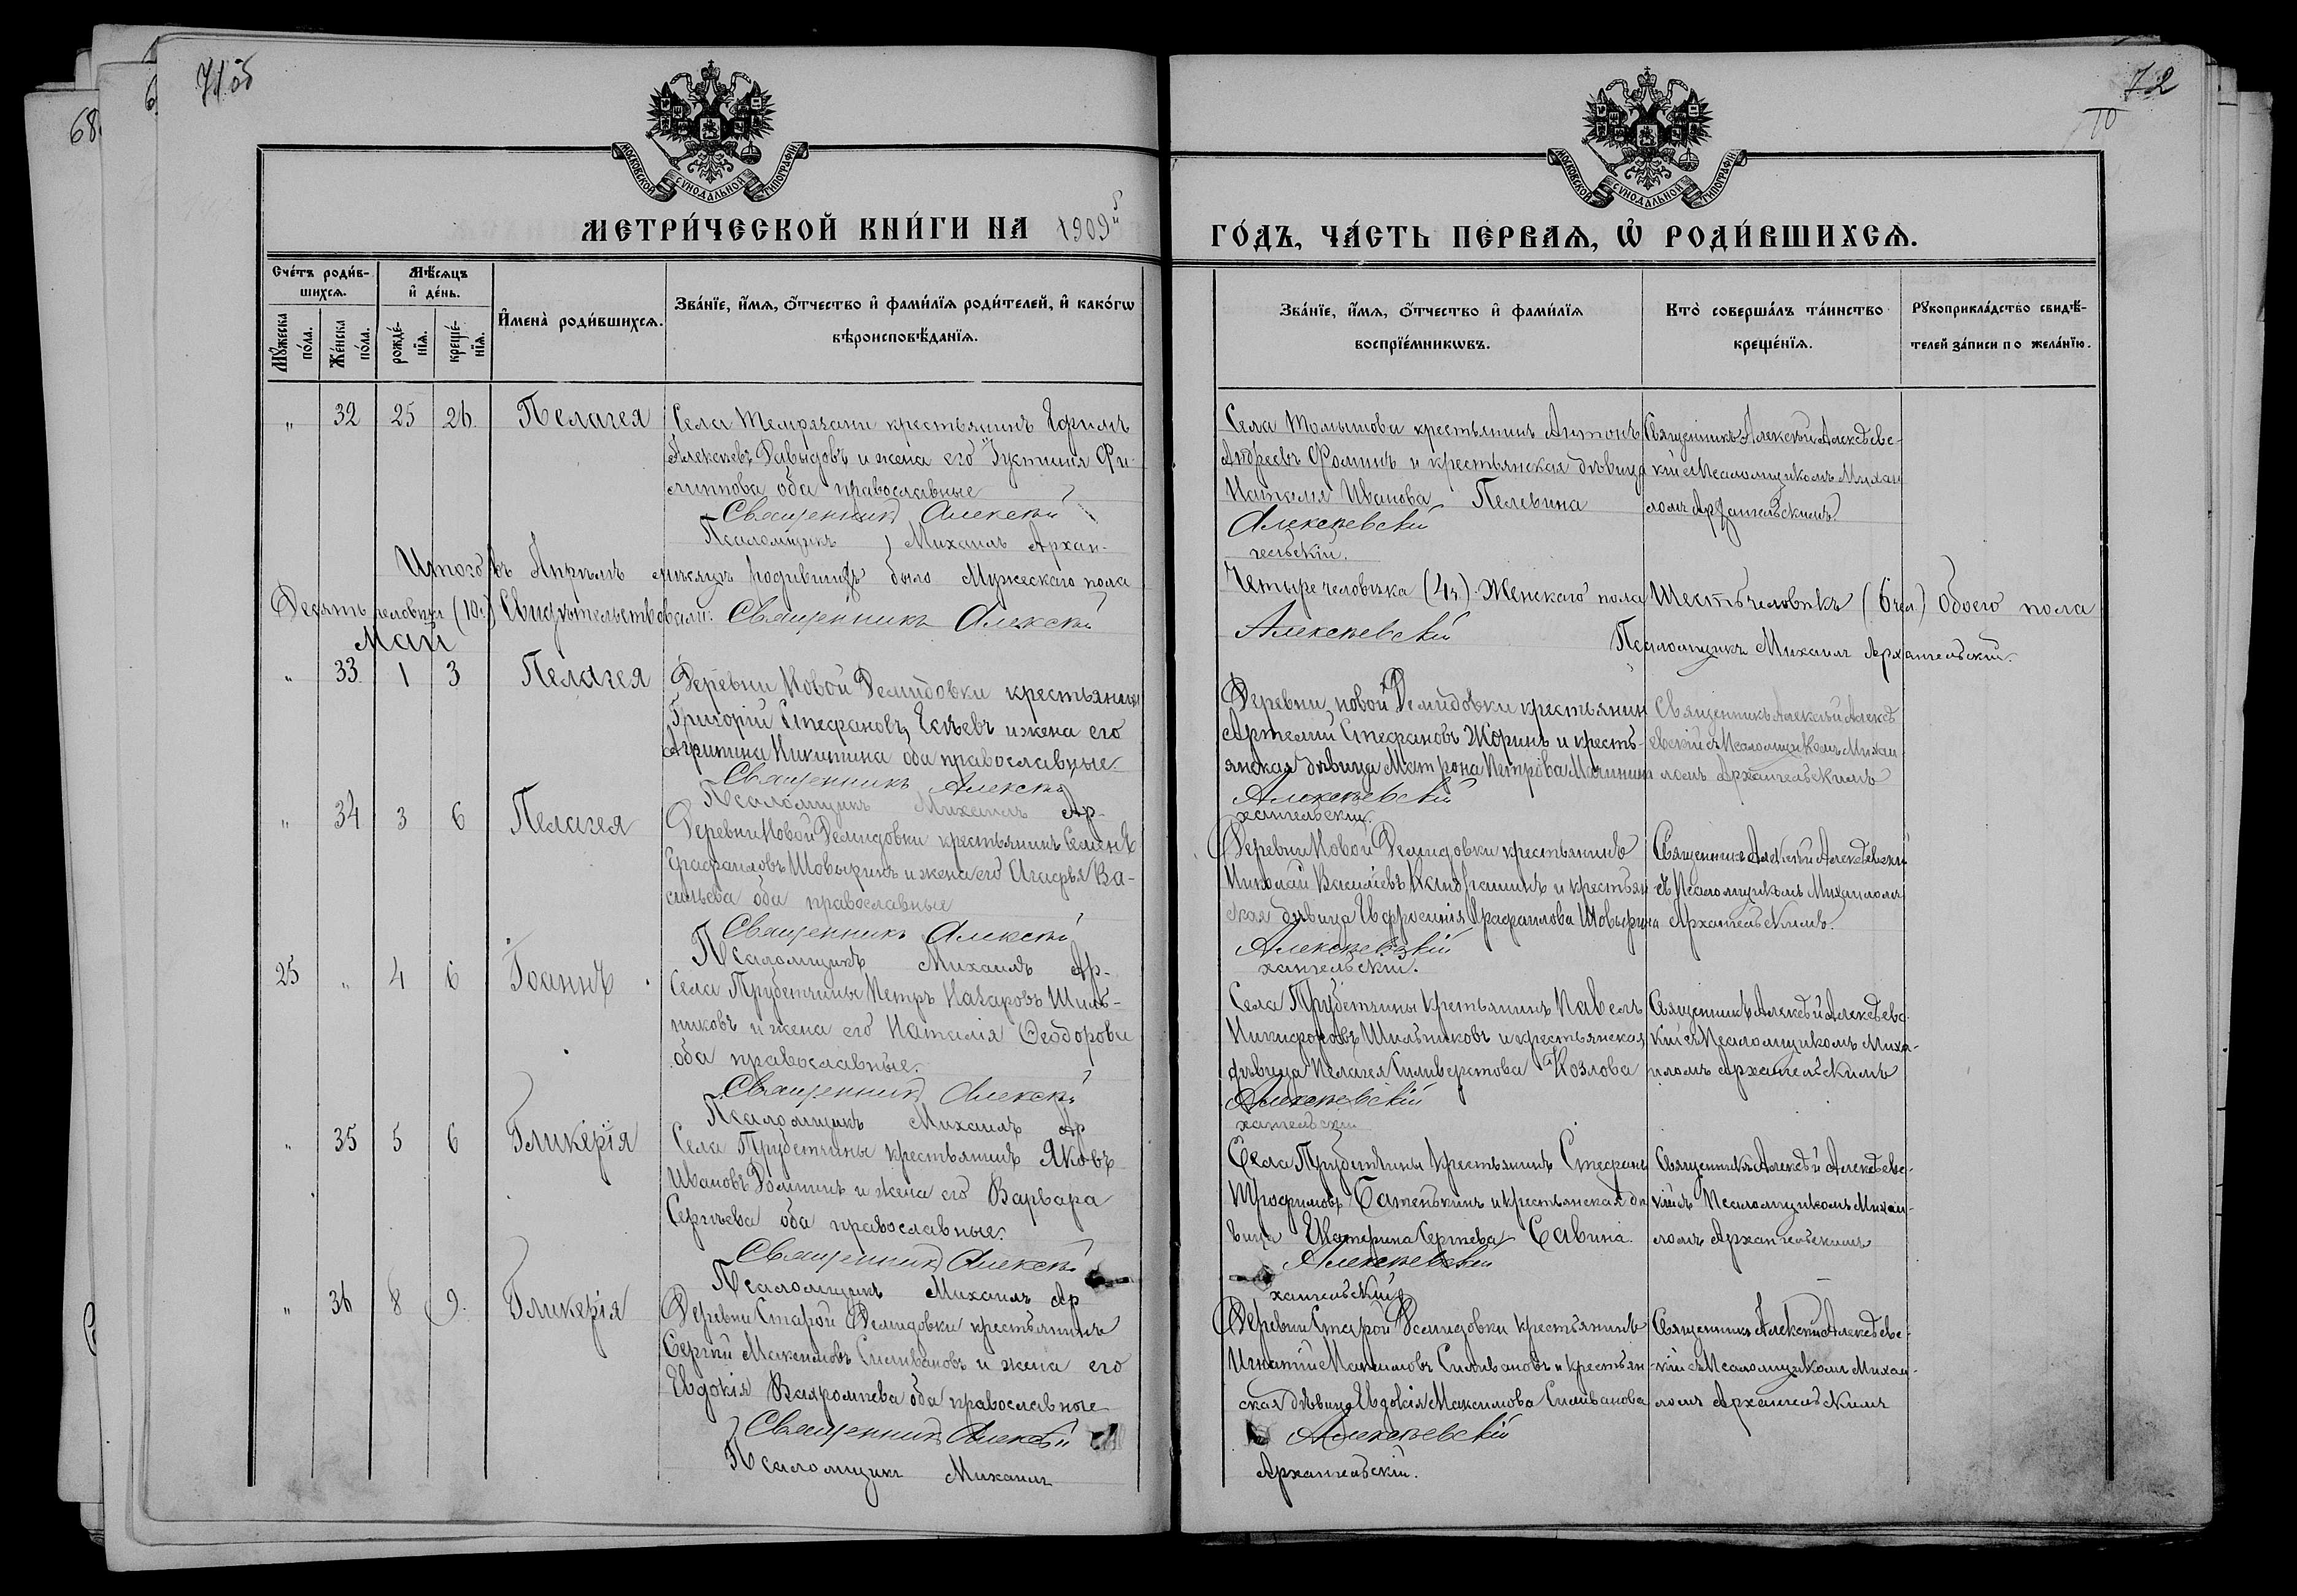 71 об
72
10
68
МОСКОВСКОЙ СѴНОДАЛЬНОЙ ТИПОГРАФІИ
МОСКОВСКОЙ СѴНОДАЛЬНОЙ ТИПОГРАФІИ
МЕТРИ́ЧЕСКОЙ КНИ́ГИ НА 1909й
ГО́ДЪ, ЧА́СТЬ ПЕ́РВАѦ, Ѽ РОДИ́ВШИХСѦ.
Сче́тъ роди́в-
шихсѧ.
Мꙋ́жеска по́ла.
Же́нска по́ла.
Мѣ́сѧцъ
и҆ де́нь.
рожде́-
нїѧ.
креще́-
нїѧ.
И҆мена̀ роди́вшихсѧ.
Зва́нїе, и҆́мѧ, ѻ҆́тчество и҆ фами́лїѧ роди́телей, и҆ како́гѡ
вѣроисповѣ́данїѧ.
Зва́нїе, и҆́мѧ, ѻ҆́тчество и҆ фами́лїѧ
воспрїе́мникѡвъ.
Кто̀ соверша́лъ та́инство
креще́нїѧ.
Рꙋкоприкла́дство свидѣ́-
телей за́писи по жела́нїю.
" 32 25 26. Пелагея
Села Темрязани крестьянинъ Ефимъ
Алексеевъ Давыдовъ и жена его Іустинія Фи-
липпова оба православные
Священникъ Алексѣй
Псаломщикъ Михаилъ Архан-
Села Томышова крестьянинъ Антонъ
Андреевъ Фоминъ и крестьянская дѣвица
Наталія Иванова Пелевина
Алексѣевскій
гельскій.
Священникъ Алексѣй Алексѣевс-
кій съ Псаломщикомъ Михаи
ломъ Архангельскимъ.
Итого въ Апрѣлѣ мѣсяцѣ родившихъ было Мужескаго пола
Четыре человѣка (4ч.) Женскаго пола Шесть человѣкъ (6 чел.) Обоего пола
Десять человѣкъ (10ч.) Свидѣтельствовали: Священникъ Алексѣй
Алексѣевскій
Псаломщикъ Михаилъ Архангельскій.
Май
" 33 1 3 Пелагея
Деревни Новой Демидовки крестьянинъ
Григорій Стефановъ Есѣевъ и жена его
Агрипина Никитина оба православные
Священникъ Алексѣй
Псаломщикъ Михаилъ Ар-
Деревни новой Демидовки крестьянин
Артемій Стефановъ Жоринъ и кресть-
янская дѣвица Матрона Петрова
Алексѣевскій
хангельскій.
Священникъ Алексѣй Алексѣ
евскій съ Псаломщикомъ Михаи
ломъ Архангельскимъ
" 34 3 6 Пелагея
Деревни Новой Демидовки крестьянинъ Семенъ
Ерафаиловъ Шовыринъ и жена его Агафья Ва-
сильева оба православные
Священникъ Алексѣй
Псаломщикъ Михаилъ Ар-
Деревни Новой Демидовки крестьянинъ
Николай Василіевъ и крестьян
ская дѣвица Евфросинія Ерафаилова Шовырина
Алексѣевскій
хангельскій.
Священникъ Алексѣй Алексѣевскій
съ Псаломщикомъ Михаиломъ
Архангельскимъ.
25 " 4 6 Іоаннъ
Села Трубетчины Петръ Назаровъ Шиль-
никовъ и жена его Наталія Ѳеодорова
оба православные.
Священникъ Алексѣй
Псаломщикъ Михаилъ Ар
Села Трубетчины крестьянинъ Павелъ
Никифоровъ Шильниковъ и крестьянская
дѣвица Пелагея Силиверстова Козлова
Алексѣевскій
хангельскій
Священникъ Алексѣй Алексѣевс
кій съ Псаломщикомъ Миха-
иломъ Архангельскимъ
" 35 5 6 Гликерія
Села Трубетчины крестьянинъ Яковъ
Ивановъ и жена его Варвара
Сергѣева оба православные.
Священникъ Алексѣй
Псаломщикъ Михаилъ Ар
Села Трубетчины крестьянинъ Стефанъ
Трофимовъ Батенькинъ и крестьянская дѣ
вица Екатерина Сергѣева Савина.
Алексѣевскій
хангельскій
Священникъ Алексѣй Алексѣевс-
кій съ Псаломщикомъ Михаи-
ломъ Архангельскимъ
" 36 8 9. Гликерія
Деревни Старой Демидовки крестьянинъ
Сергій Максимовъ Силивановъ и жена его
Евдокія Варѳоломѣева оба православные
Священникъ Алексѣй
Псаломщикъ Михаилъ
Деревни Старой Демидовки крестьянинъ
Игнатій Максимовъ Силивановъ и крестьян
ская дѣвица Евдокія Максимова Силиванова
Алексѣевскій
Архангельскій.
Священникъ Алексѣй Алексѣевс-
кій съ Псаломщикомъ Михаи-
ломъ Архангельскимъ